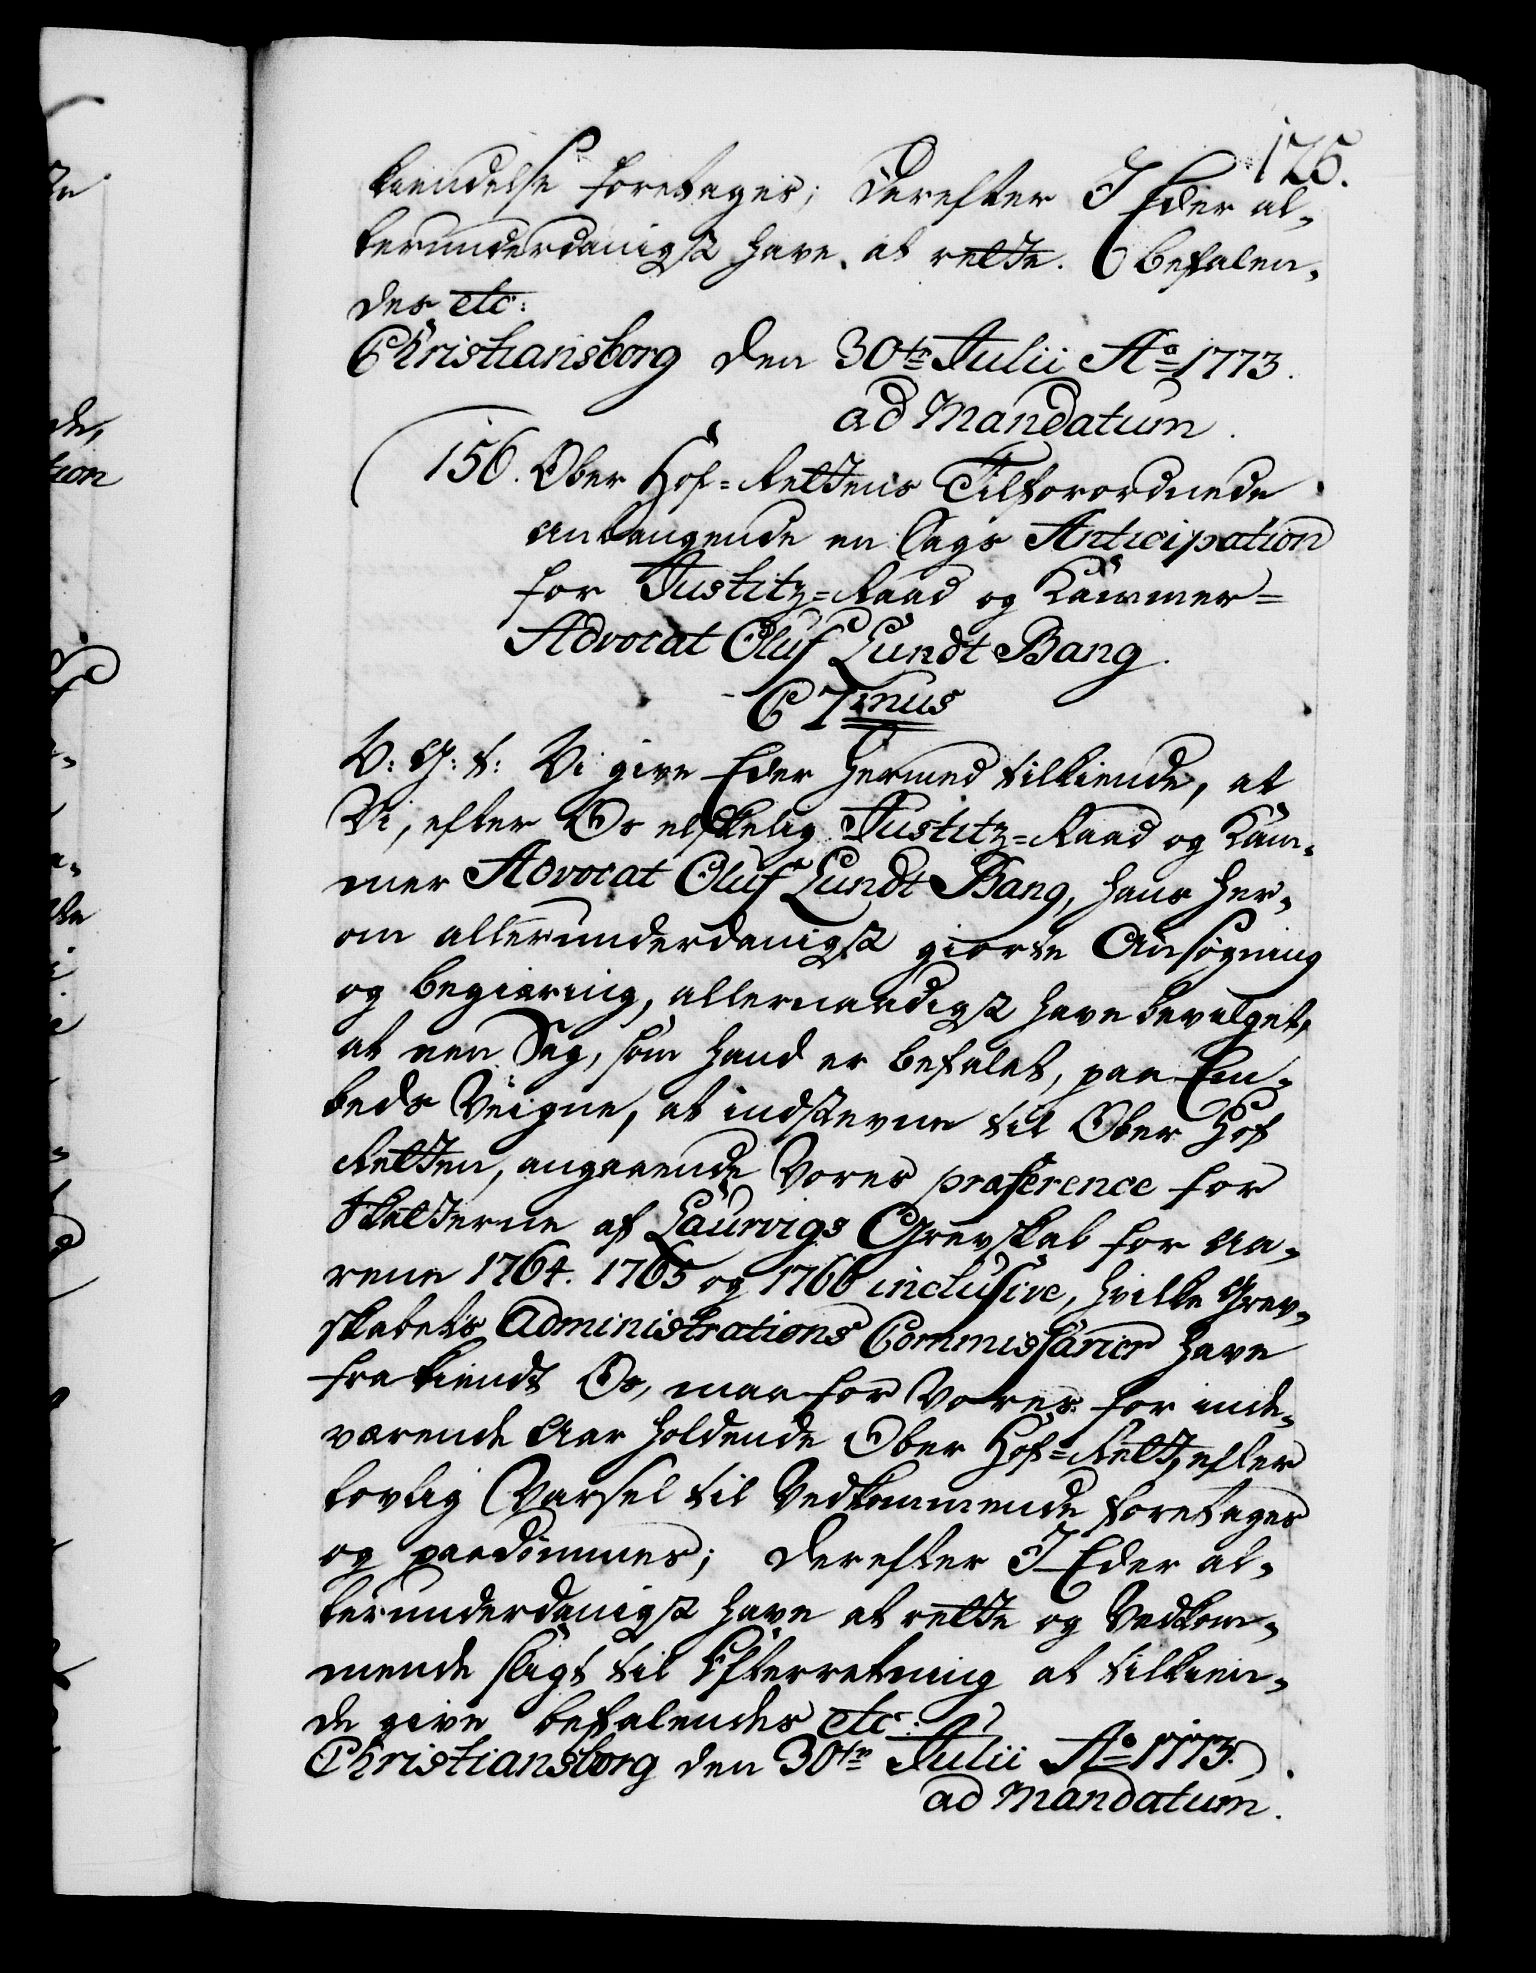 126.
kiendelse foretages; Derefter I Eder al-
lerunderdanigst have at rette. Befalen-
des etc:
Christiansborg den 30te Julii Ao 1773.
ad Mandatum.
156. Ober Hof-Rettens Tilforordnede
anlangende en Sags Anticipation
for Justitz-Raad og Kammer-
Advocat Oluf Lundt Bang.
C 7mus
V: G: t: Vi give Eder hermed tilkiende, at
Vi, efter Os elskelig Justitz-Raad og Kam-
mer Advocat Oluf Lundt Bang, hans her-
om allerunderdanigst giorte Ansøgning
og begiæring, allernaadigst have bevilget,
at een Sag, som hand er befalet, paa Em-
beds Veigne, at indstevne til Ober Hof
Retten, angaaende Vores præference for
Skatterne af Laurvigs Grevskab for Aa-
rene 1764. 1765 og 1766 inclusive, hvilke Grev-
skabets Administrations Commissarier have
frakiendt Os, maa for Vores for inde-
værende Aar holdende Ober Hof-Rett, efter
lovlig Varsel til Vedkommende foretages
og paadømmes; Derefter I Eder al-
lerunderdanigst have at rette og Vedkom-
mende sligt til Efterretning at tilkien-
de give befalendes etc:
Christiansborg den 30te Julii Ao 1773.
ad Mandatum.